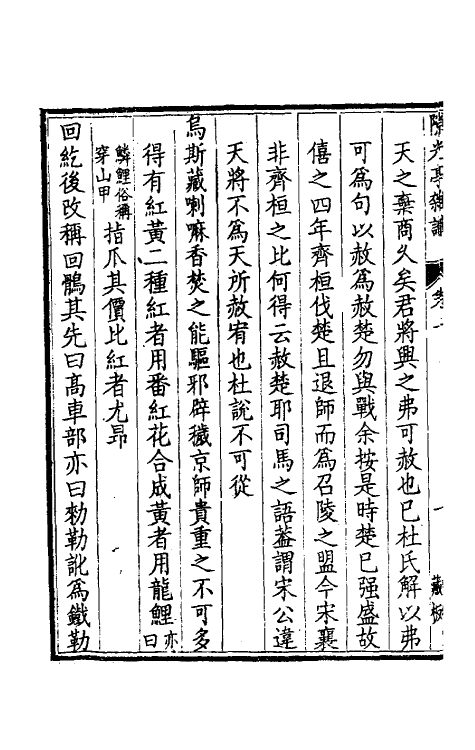 天之棄商久矣君將興之弗可赦也已杜氏解以弗
可爲句以赦爲赦楚勿與戰余按是時楚已强盛故
僖之四年齊桓伐楚且退師而爲召陵之盟今宋襄
非齊桓之比何得云赦楚耶司馬之語葢謂宋公違
天將不爲天所赦宥也杜說不可從
烏斯藏喇嘛香焚之能驅邪辟穢京師貴重之不可多
得有紅黃二種紅者用番紅花合成黃者用龍鯉亦曰
鱗鯉俗稱穿山甲指爪其價比紅者尤昻
回紇後改稱回鶻其先曰高車部亦曰勑勒訛爲鐵勒